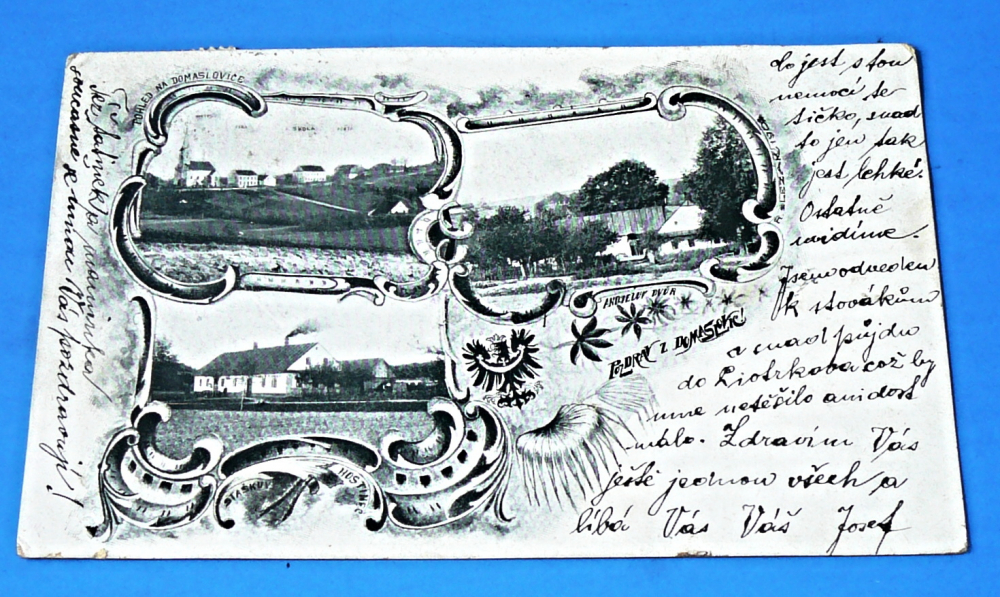 POHLED NA DOMASLOVICE
ŠKOLA
ANDJELŮV DVŮR
POZDRAV Z DOMASLOVIC
STAŠKŮV HOSTINEC
do jest s tou
nemocí te
tičko, snad
to jen tak
jest lehké.
Ostatně
uvidíme.
Jsem odveden
k stovákům
a snad půjdu
do Piotrkova což by
mne netěšilo ani dost
málo. Zdravím Vás
ještě jednou všech a
líbá Vás Váš Josef
současně se mnou Vás pozdravují!